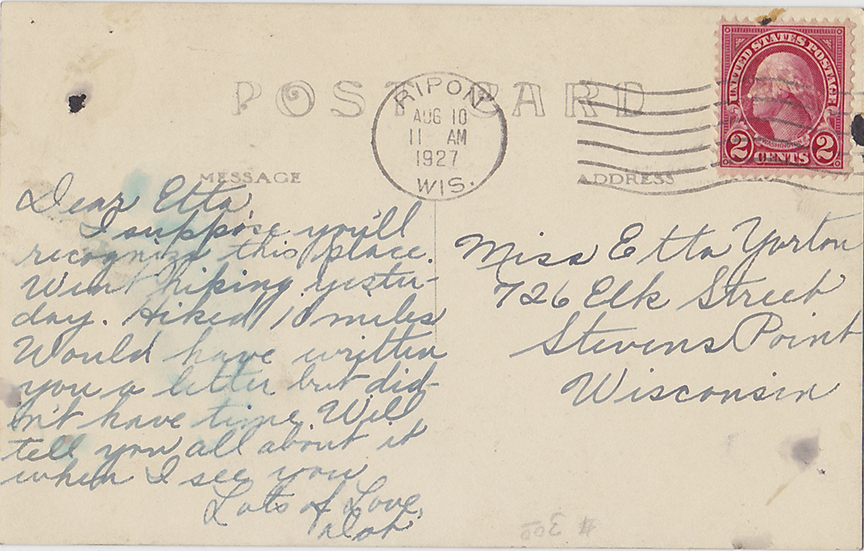 POST CARD
RIPON
AUG 10
11 AM
1927
WIS.
UNITED STATES POSTAGE
2 CENTS 2
MESSAGE
ADDRESS
Dear Etta
I suppose you'll
recognize this place.
Went hiking yester-
day. Hiked 10 miles
Would have written
you a letter but did-
n't have time. Will
tell you all about it
when I see you
Lots of Love,
Miss Etta Yorton
726 Elk Street
Stevens Point
Wisconsin